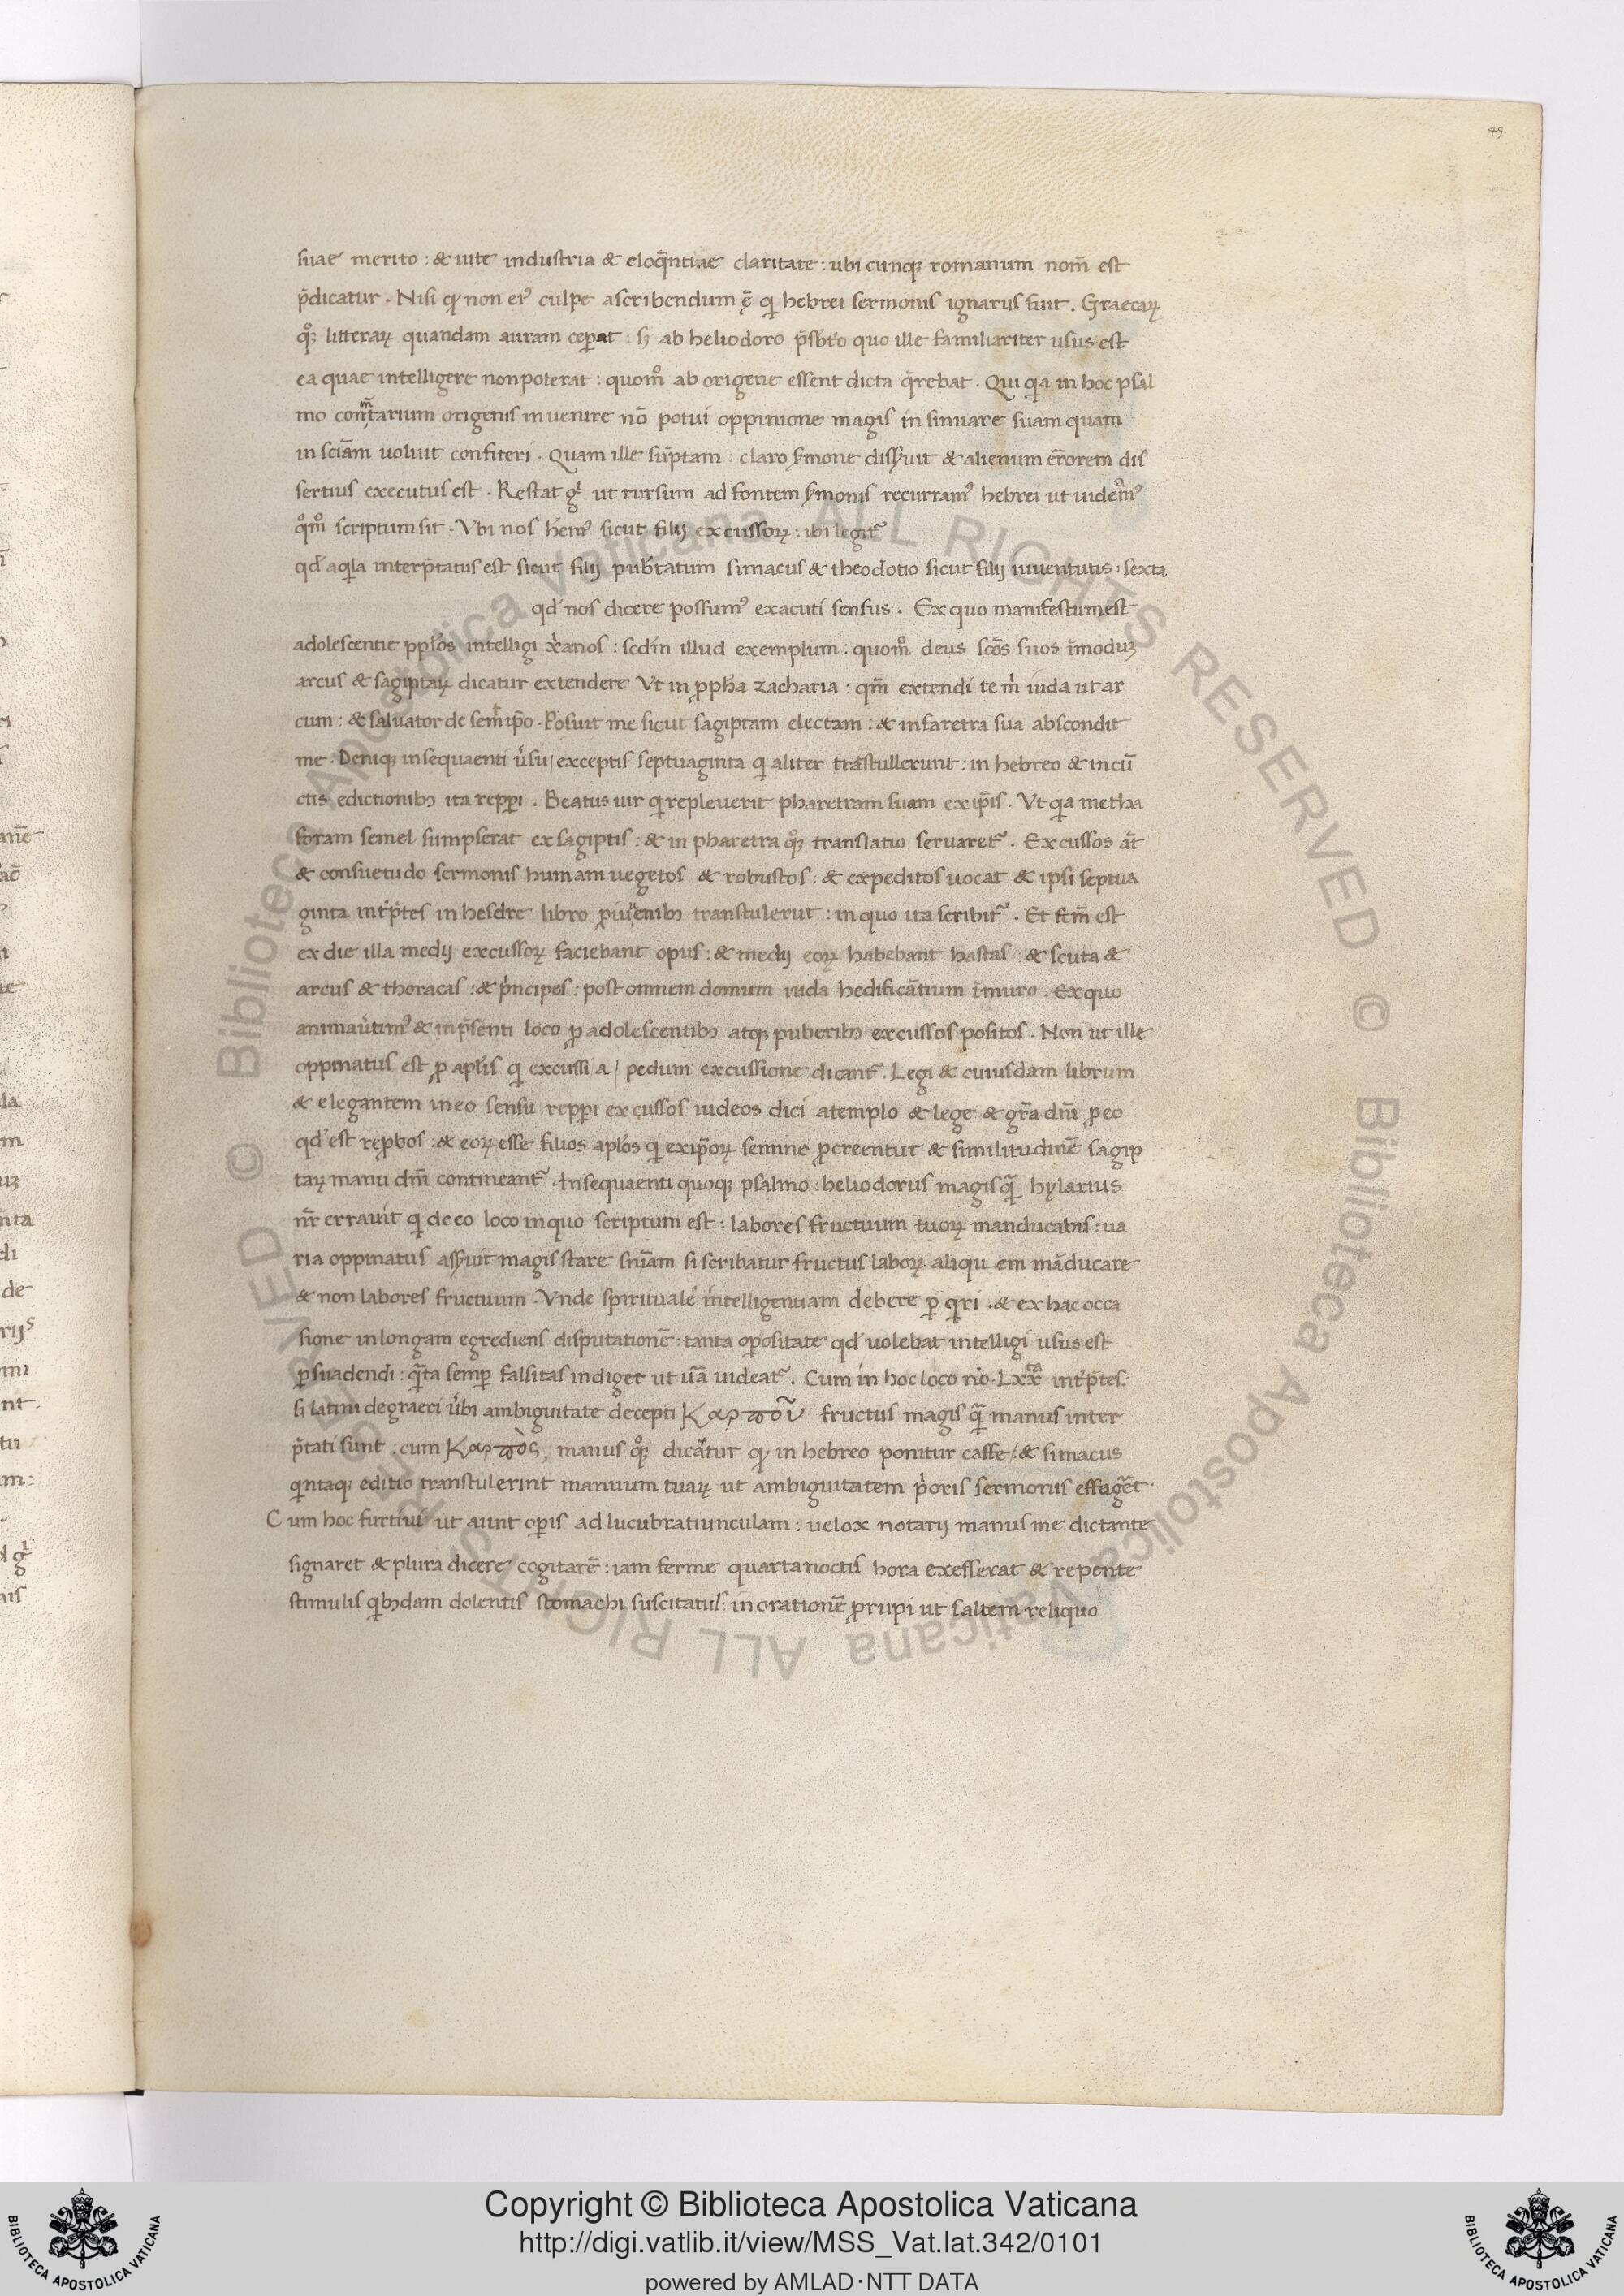 49
suae merito : & uite industria & eloq̄ntiae claritate : ubi cunqꝫ romanum nom̄ est
p̄dicatur . Nisi qꝫ non ei᾿ culpe ascribendum ę̄ qͥ hebrei sermonis ignarus fuit . Graecaꝝ
qͦꝫ litteraꝝ quandam auram ceꝑat : sꝫ ab heliodoro p̄sbt̄o quo ille familiariter usus est
ea quae intelligere non poterat : quom̊ ab origene essent dicta q̄rebat . Qui qͥa in hoc psal
mo com̄tarium origenis inuenire nō potui oppinione magis in sinuare suam quam
in scīam uoluit confiteri . Quam ille sūptam : claro ẜmone disẜuit & alienum er̄rorem dis
sertius executus est . Restat gͥ ut rursum ad fontem ẜmonis recurram᾿ hebrei ut uideam᾿
qͦm̊ scriptum sit . Vbi nos hēm᾿ sicut filij excussoꝝ : ibi legit᷑
qd̓ aqͥla interp̄tatus est sicut filij pub̄tatum simacus & theodotio sicut filij iuuentutis : sexta
qd̓ nos dicere possum᾿ exacuti sensus . Ex quo manifestum est
adolescentie pplo̓s intelligi xͥanos : scdm̄ illud exemplum : quom̊ deus scōs suos īmoduꝫ
arcus & sagiptaꝝ dicatur extendere Vt in ꝓph̄a zacharia : qm̄ extendi te mͥ iuda ut ar
cum : & saluator de semet ip̄o . Posuit me sicut sagiptam electam : & in faretra sua abscondit
me . Deniqꝫ in sequaenti u̓su / exceptis septuaginta qͥ aliter trāstullerunt : in hebreo & in cū
ctis edictionibꝫ ita repꝑi . Beatus uir qͥ repleuerit pharetram suam ex ip̄is . Vt qͥa metha
foram semel sumpserat ex sagiptis : & in pharetra qͦꝫ translatio seruaret᷑ . Excussos āt
& consuetudo sermonis humani uegetos & robustos : & expeditos uocat & ipsi septua
ginta int̓p̄tes in hesdre libro ꝓ iuuenibꝫ transtulerut : in quo ita scribit᷑ . Et fcm̄ est
ex die illa medij excussoꝝ faciebant opus : & medij eoꝝ habebant hastas : & scuta &
arcus & thoracas : & pͥncipes : post omnem domum iuda hedificātium ī muro . Ex quo
animau̓tim᾿ & in p̄senti loco ꝓ adolescentibꝫ atqꝫ puberibꝫ excussos positos . Non ut ille
oppinatus est ꝓ aplis̄ qͥ excussi a / pedum excussione dicant᷑ . Legi & cuiusdam librum
& elegantem in eo sensu repꝑi excussos iudeos dici a templo & lege & gr̄a dm̄ ꝓ eo
qd̓ est reꝓbos : & eoꝝ esse filios aplo̓s qͥ ex ip̄oꝝ semine ꝓcreentur & similitudinē sagip
taꝝ manu dm̄ contineant᷑ . In sequaenti quoqꝫ psalmo : heliodorus magis qͣ̄ hylarius
nr̄ errauit qͥ de eo loco in quo scriptum est : labores fructuum tuoꝝ manducabis : ua
ria oppinatus asẜuit magis stare snīam si scribatur fructus laboꝝ aliquem māducare
& non labores fructuum . Vnde spiritualē intelligentiam debere ꝑ qͥri . & ex hac occa
sione in longam egrediens disputationē : tanta oꝑositate qd̓ volebat intelligi usus est
ꝑsuadendi : qͣ̄ta semꝑ falsitas indiget ut uā uideat᷑ . Cum in hoc loco nō . Lxxͭᵃ int̓p̄tes :
sꝫ latini de graeci u̓bi ambiguitate decepti καρπο͂υ fructus magis qͣ̄ manus inter
p̄tati sunt : cum καρπὸς , manus qͦꝫ dicātur qꝫ in hebreo ponitur caffe / & simacus
qͥntaqꝫ editio transtulerint manuum tuaꝝ ut ambiguitatem pͥoris sermonis effugēt .
Cum hoc furtiui᾿ ut aiunt oꝑis ad lucubratiunculam : uelox notarij manus me dictante
signaret & plura dicere cogitarē : iam ferme quarta noctis hora exesserat & repente
stimulis qͥbꝫdam dolentis stomachi suscitatus : in orationē ꝓrupi ut saltem reliquo
Copyright © Biblioteca Apostolica Vaticana
http://digi.vatlib.it/view/MSS_Vat.lat.342/0101
powered by AMLAD·NTT DATA